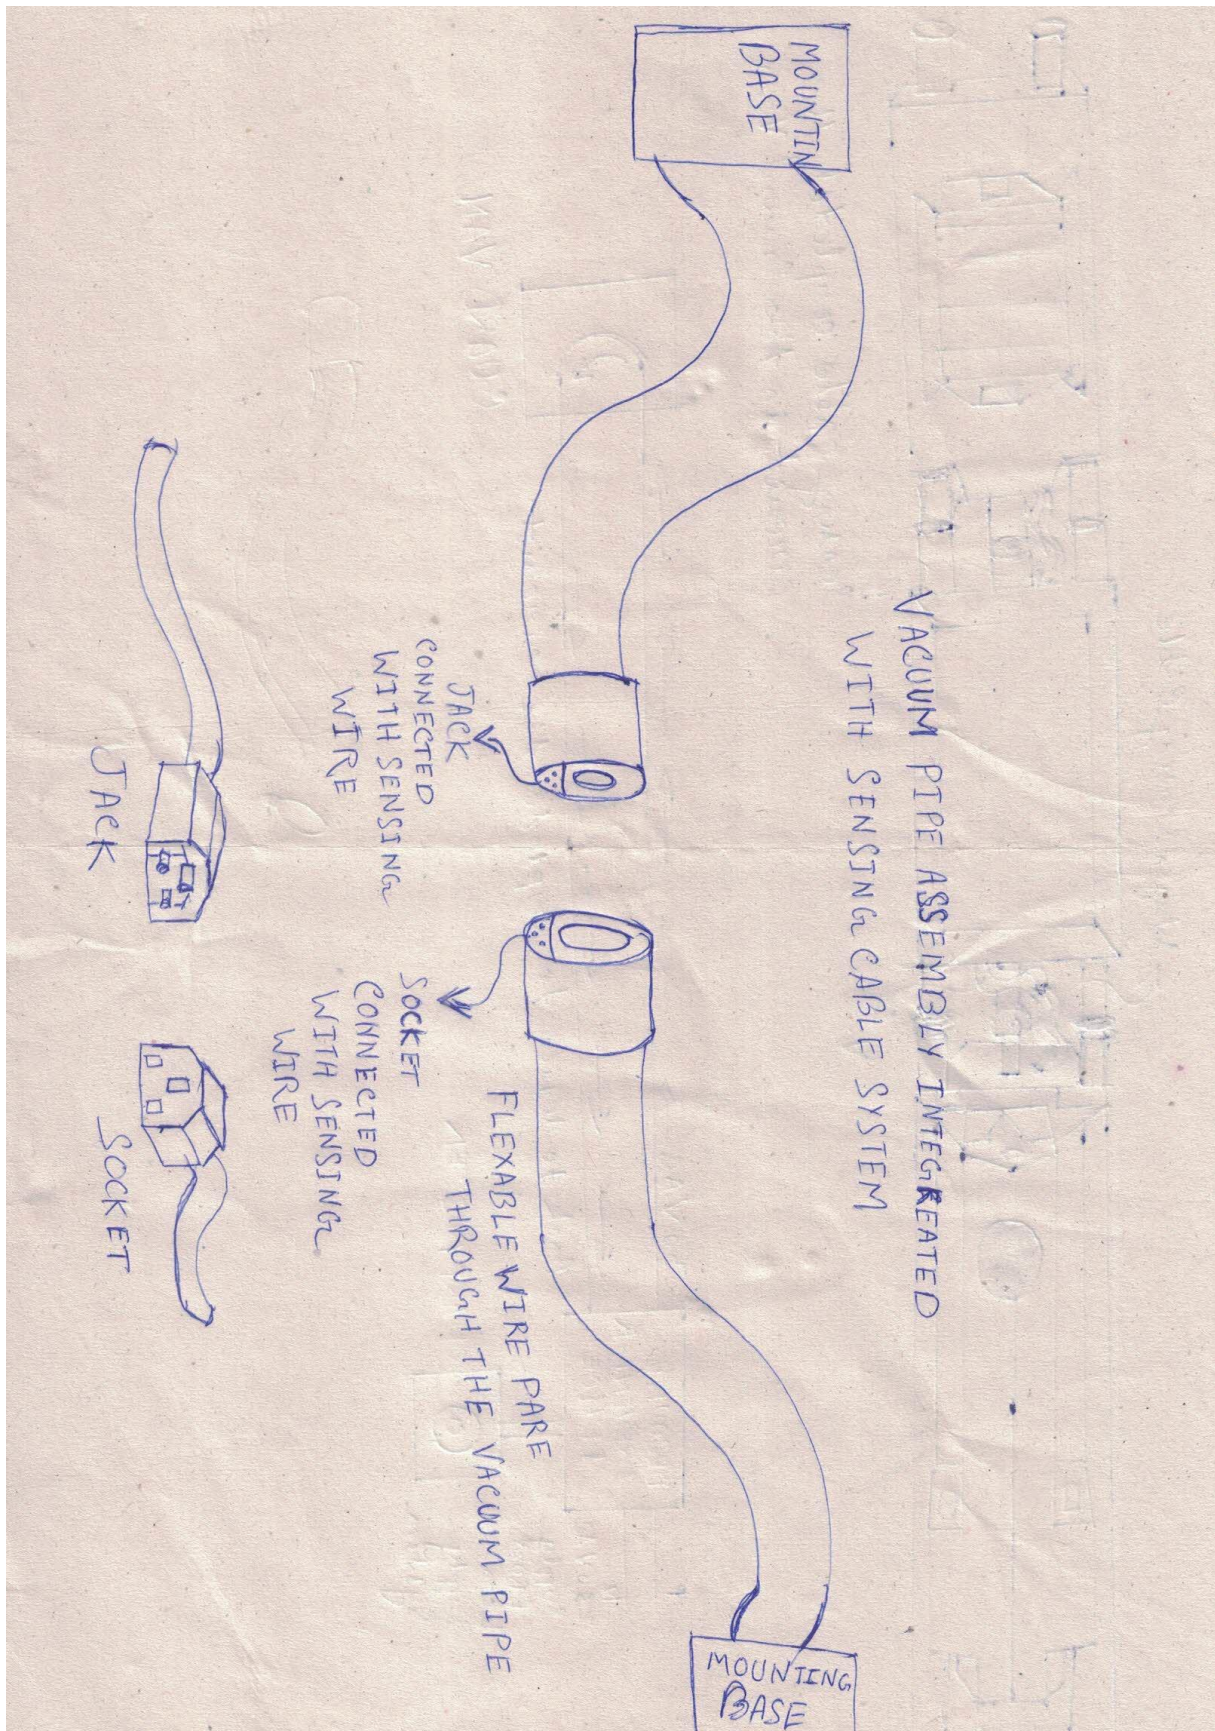 VACUUM PIPE ASSEMBLY INTEGREATED
WITH SENSING CABLE SYSTEM
MOUNTIN
BASE
MOUNTING
BASE
JACK
CONNECTED
WITH SENSING
WIRE
SOCKET
CONNECTED
WITH SENSING
WIRE
FLEXABLE WIRE PARE
THROUGH THE VACUUM PIPE
JACK
SOCKET